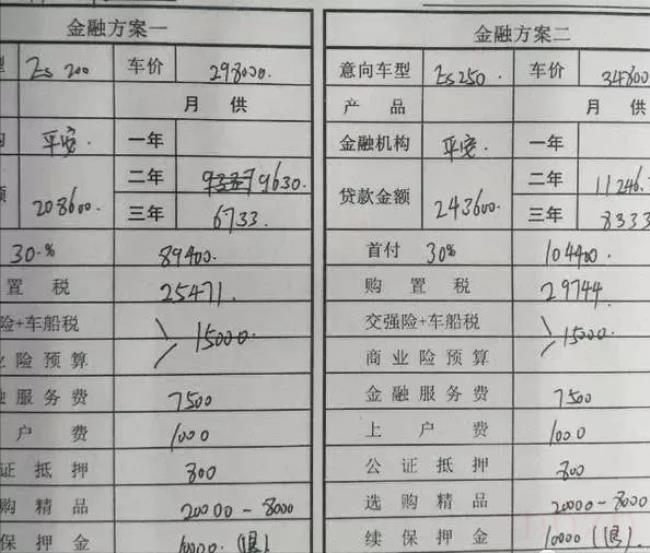 金融方案一
型 Es 200 车价 298000.
月供
构 平安. 一年
额 208600. 二年 9337 9630.
三年 6733.
30.% 89400.
置税 25471.
险+车船税 15000.
业险预算
融服务费 7500
户费 1000
证抵押 800
购精品 20000-8000
保押金 10000.(退)
金融方案二
意向车型 Es250. 车价 34800
产品 月供
金融机构 平安. 一年
贷款金额 243600. 二年 11246.
三年 8333
首付 30% 104400.
购置税 29744
交强险+车船税 15000.
商业险预算
金融服务费 7500
上户费 1000.
公证抵押 800
选购精品 20000-8000
续保押金 10000 (退).